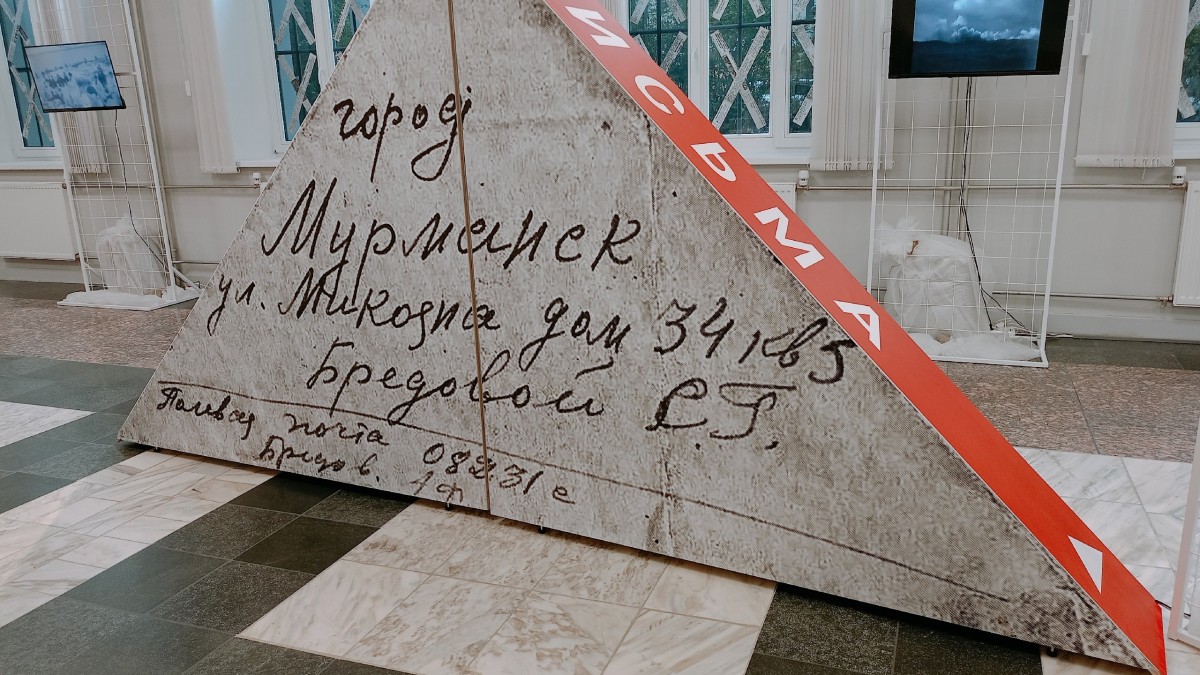 город
Мурманск
ул. Микояна дом 34 кв 5
Бредовой С.Г.
Полевая почта 08231 е
Бредов. А Ф
ИСЬМА